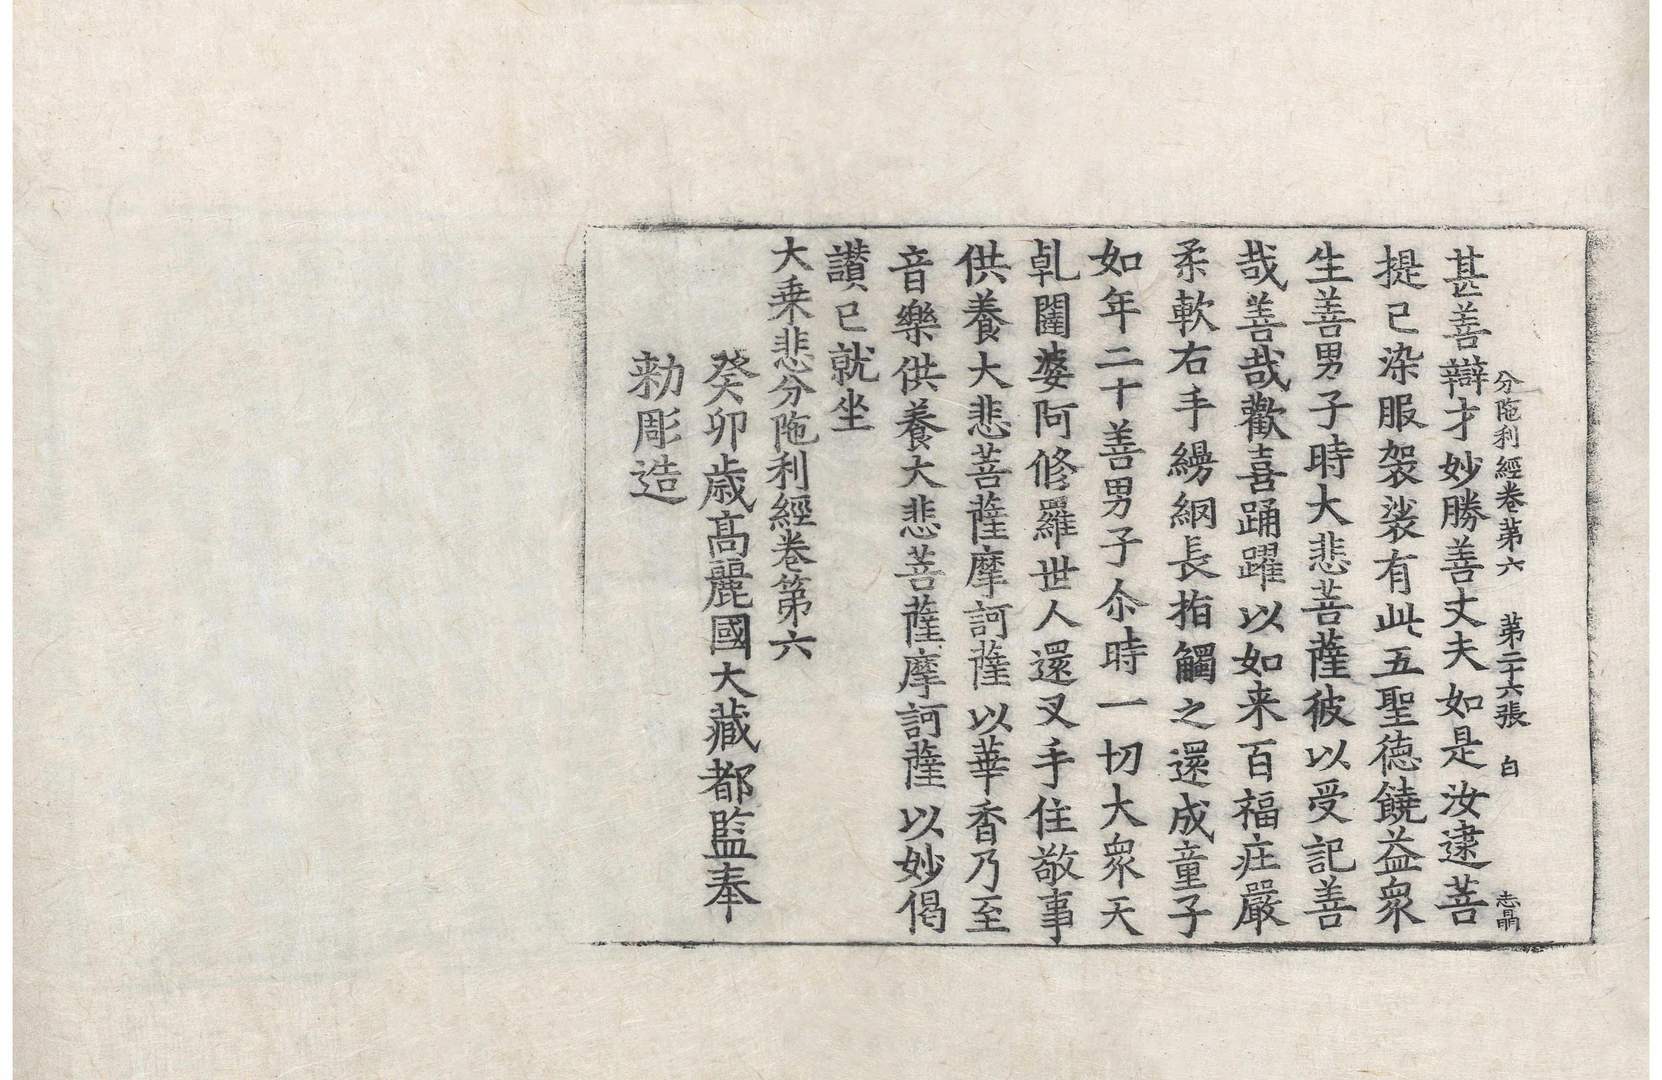 分陁利經卷第六 第二十六張 白 志晶
甚善辯才妙勝善丈夫如是汝逮菩
提已染服袈裟有此五聖德饒益衆
生善男子時大悲菩薩彼以受記善
哉善哉歡喜踊躍以如来百福庄嚴
柔軟右手縵網長指觸之還成童子
如年二十善男子尒時一切大衆天
乹闥婆阿修羅世人還叉手住敬事
供養大悲菩薩摩訶薩以華香乃至
音樂供養大悲菩薩摩訶薩以妙偈
讃已就坐
大乗悲分陁利經卷第六
癸卯歳高麗國大藏都監奉
勑彫造